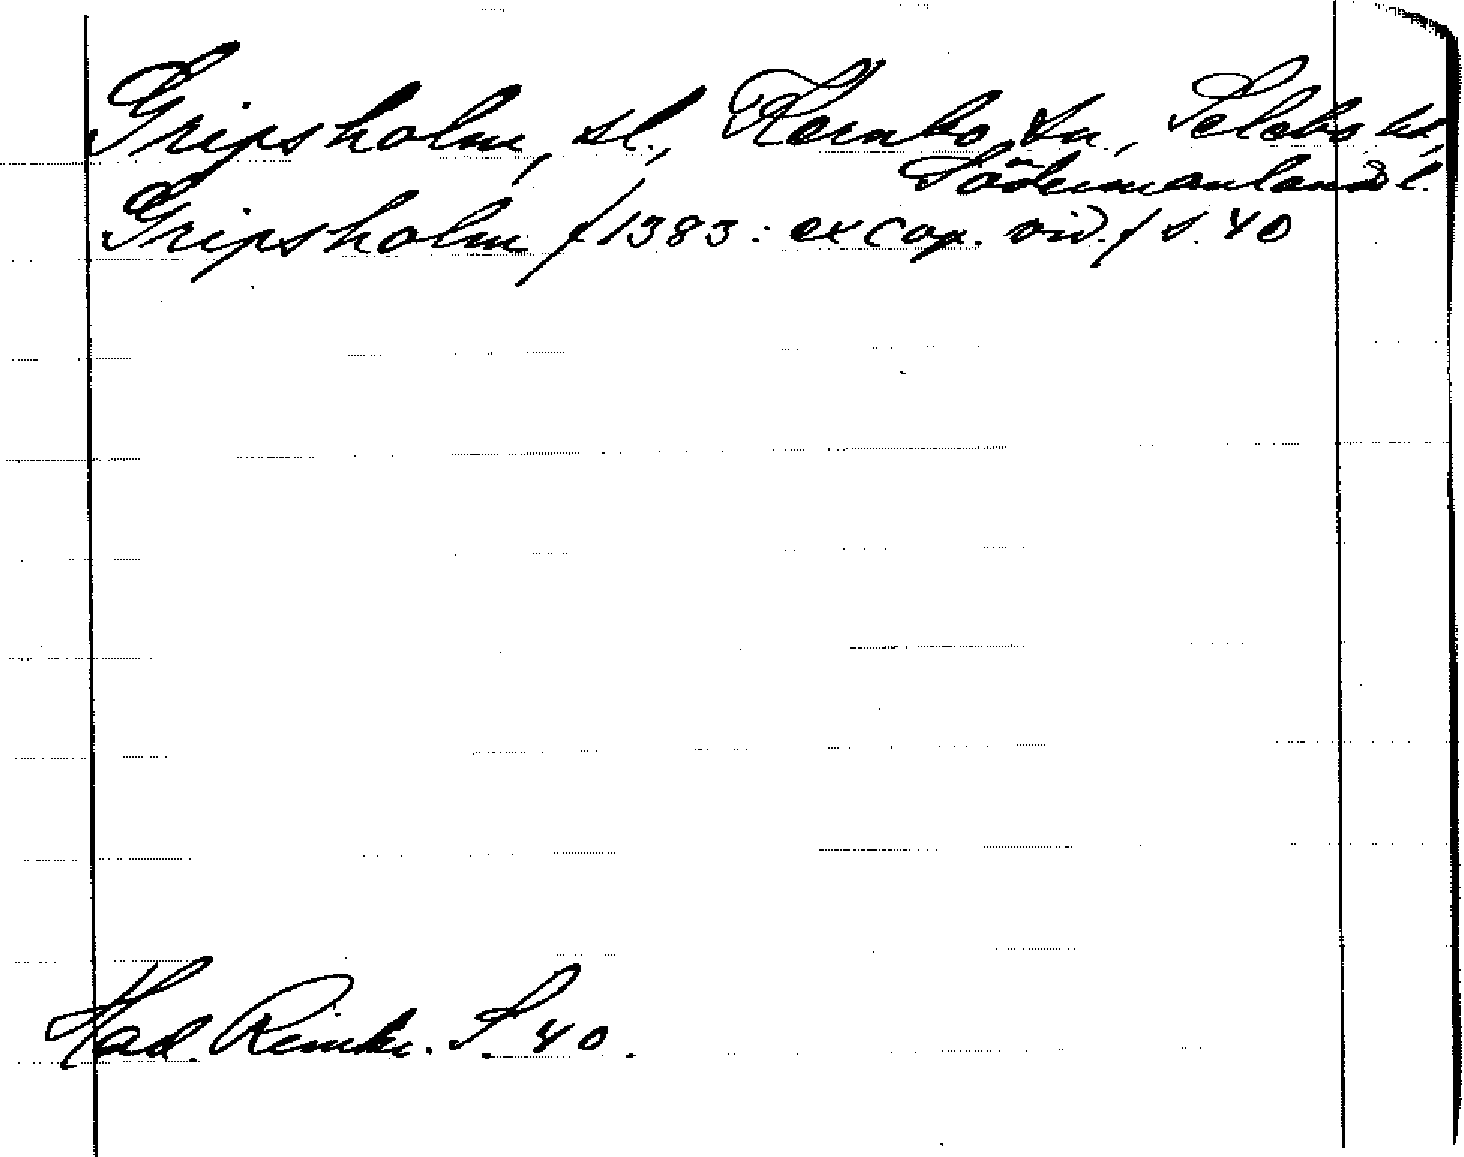 Gripsholm, sl., Kernbo sn, Selebo hd,
Södermanland l.
Gripsholm /1383: ex cop. vid./ s. 40
Had. Reinh. S. 40.